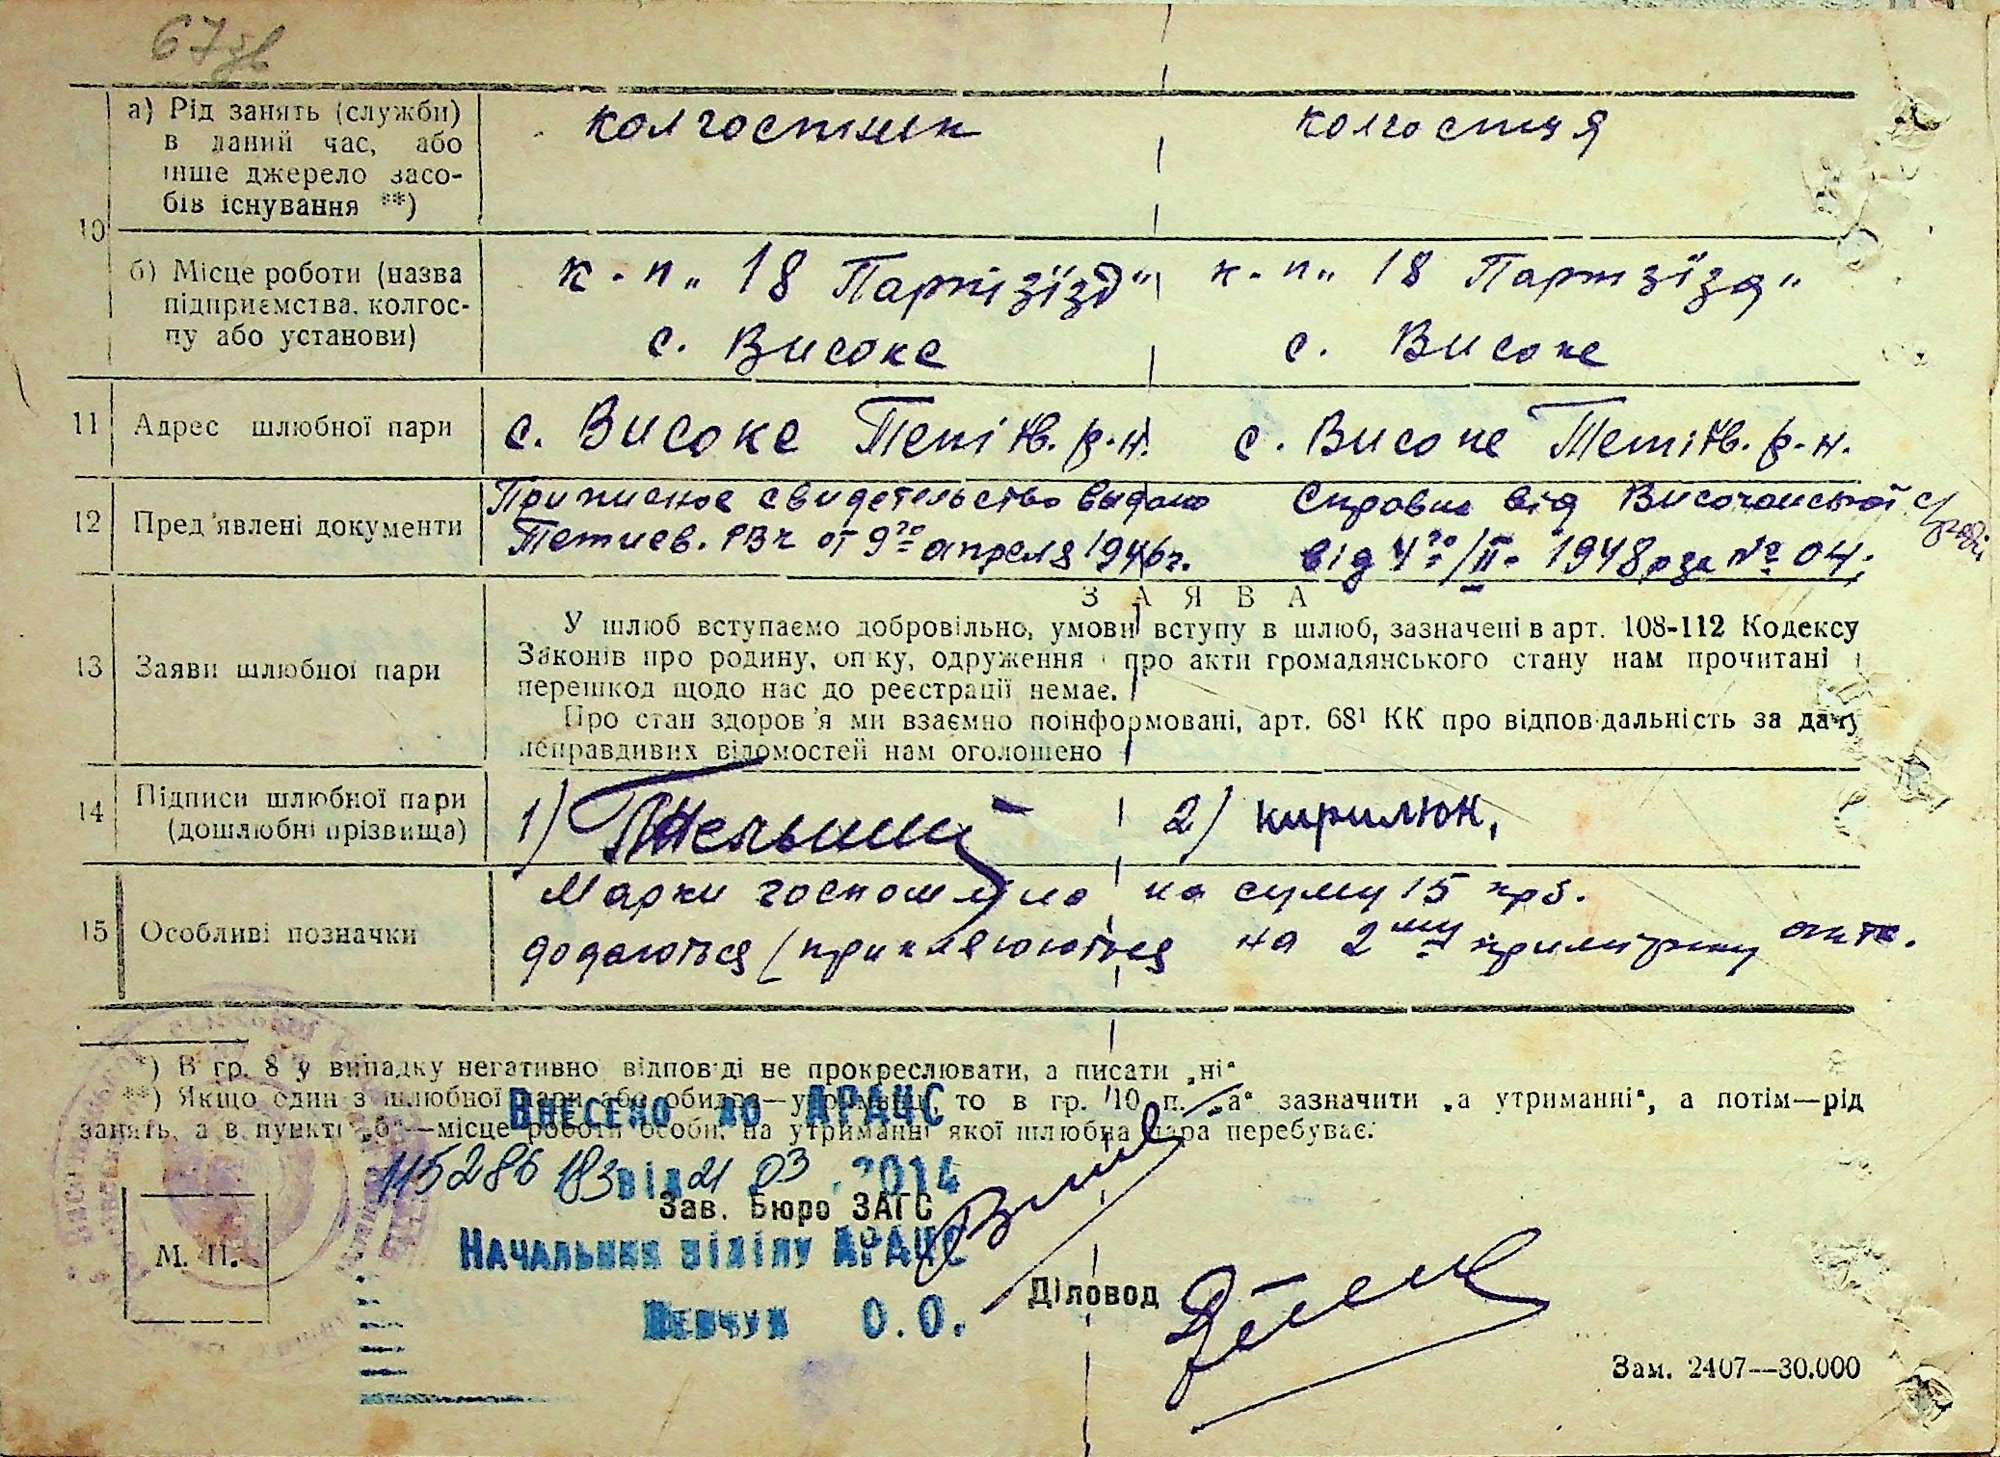 67зв
10
а) Рід занять (служби) в даний час, або інше джерело засобів існування **)
колгостник
колгостця
б) Місце роботи (назва підприємства, колгоспу або установи)
к-п „18 Партізїзд"
к-п „18 Партзїзд"
с. Високе
с. Високе
11 Адрес шлюбної пари
с. Високе Тетіїв. р-н.
с. Високе Тетіїв. р-н.
12 Пред'явлені документи
Приписное свидетельство выдано
Тетиев. РВК от 9го апреля 1946г.
Справка від Височанської с/ради
від 4го/II- 1948р за № 04;
13 Заяви шлюбної пари
ЗАЯВА
У шлюб вступаємо добровільно, умови вступу в шлюб, зазначені в арт. 108-112 Кодексу
Законів про родину, опіку, одруження і про акти громадянського стану нам прочитані і
перешкод щодо нас до реєстрації немає.
Про стан здоров'я ми взаємно поінформовані, арт. 68¹ КК про відповідальність за дачу
неправдивих відомостей нам оголошено
14 Підписи шлюбної пари (дошлюбні прізвища)
1)
2) кирилюк,
15 Особливі позначки
Марки госпошліно на суму 15 крб.
додаються (приклеюються на 2му примірнику акта.
*) В гр. 8 у випадку негативної відповіді не прокреслювати, а писати „ні"
**) Якщо один з шлюбної пари або обидва—утриманці то в гр. 10 п. „а" зазначити „а утриманні", а потім—рід
занять, а в пункті „б"—місце роботи особи, на утриманні якої шлюбна пара перебуває.
Внесено до АРАЦС
115286183 від 21 03 .2014
Зав. Бюро ЗАГС
Начальник відділу АРАЦС
М. П.
Діловод
Шевчук О.О.
Зам. 2407—30.000